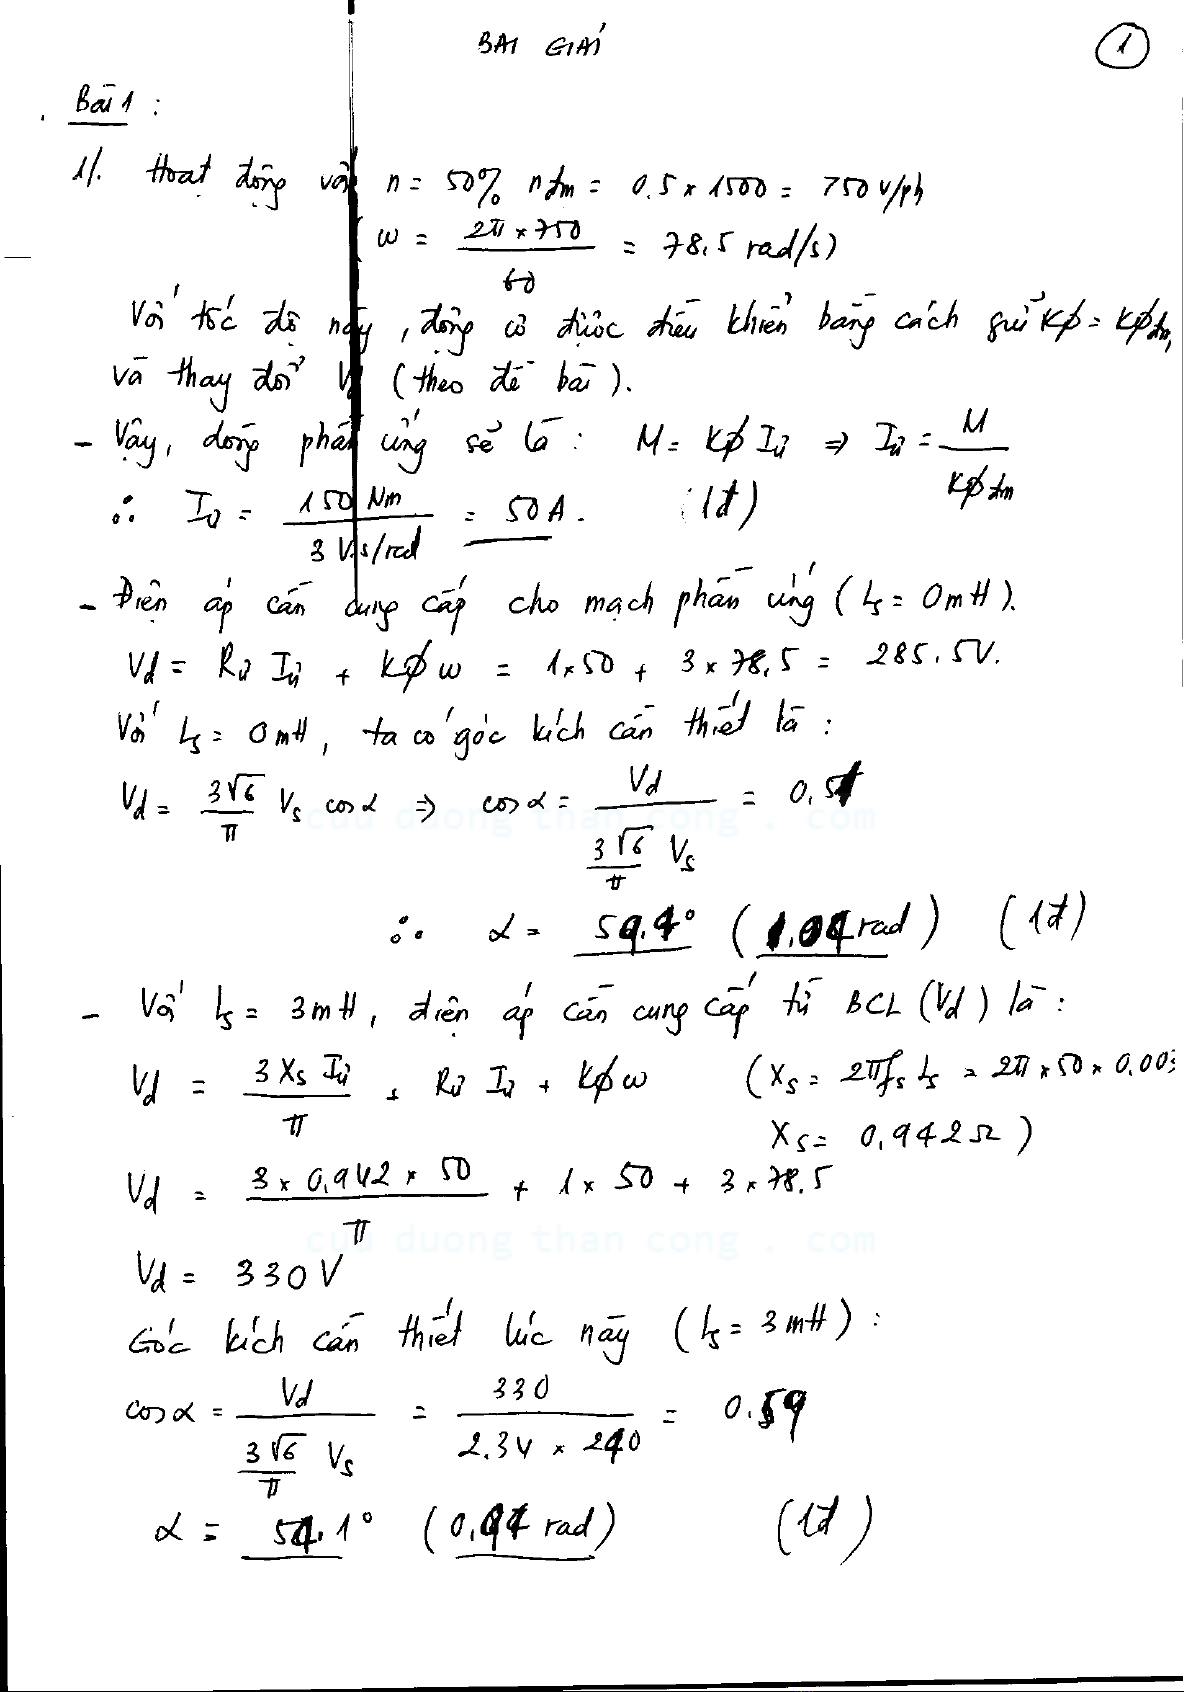 BÀI GIẢI
1
Bài 1 :
1/. Hoạt động với n = 50% nđm = 0.5 × 1500 = 750 v/ph
( ω = 2π × 750 / 60 = 78,5 rad/s)
Với tốc độ này, động cơ được điều khiển bằng cách giữ Kφ = Kφđm,
và thay đổi Vư (theo đề bài).
- Vậy, dòng phần ứng sẽ là : M = Kφ Iư ⇒ Iư = M / Kφđm
∴ Iư = 150 Nm / 3 V.s/rad = 50 A. (1đ)
- Điện áp cần cung cấp cho mạch phần ứng ( Ls = 0 mH ).
Vd = Rư Iư + Kφ ω = 1 × 50 + 3 × 78,5 = 285,5V.
Với Ls = 0 mH, ta có góc kích cần thiết là :
Vd = 3√6 / π Vs cosα ⇒ cosα = Vd / (3√6 / π Vs) = 0,51
cuu duong than cong . com
∴ α = 59,4° ( 1,04 rad ) (1đ)
- Với Ls = 3 mH, điện áp cần cung cấp từ BCL (Vd) là :
Vd = 3 Xs Iư / π + Rư Iư + Kφω ( Xs = 2πfs Ls = 2π × 50 × 0.003
Xs = 0,942Ω )
Vd = 3 × 0,942 × 50 / π + 1 × 50 + 3 × 78,5
cuu duong than cong . com
Vd = 330 V
Góc kích cần thiết lúc này ( Ls = 3 mH ) :
cosα = Vd / (3√6 / π Vs) = 330 / 2.34 × 240 = 0.59
α = 54,1° ( 0,94 rad ) (1đ)